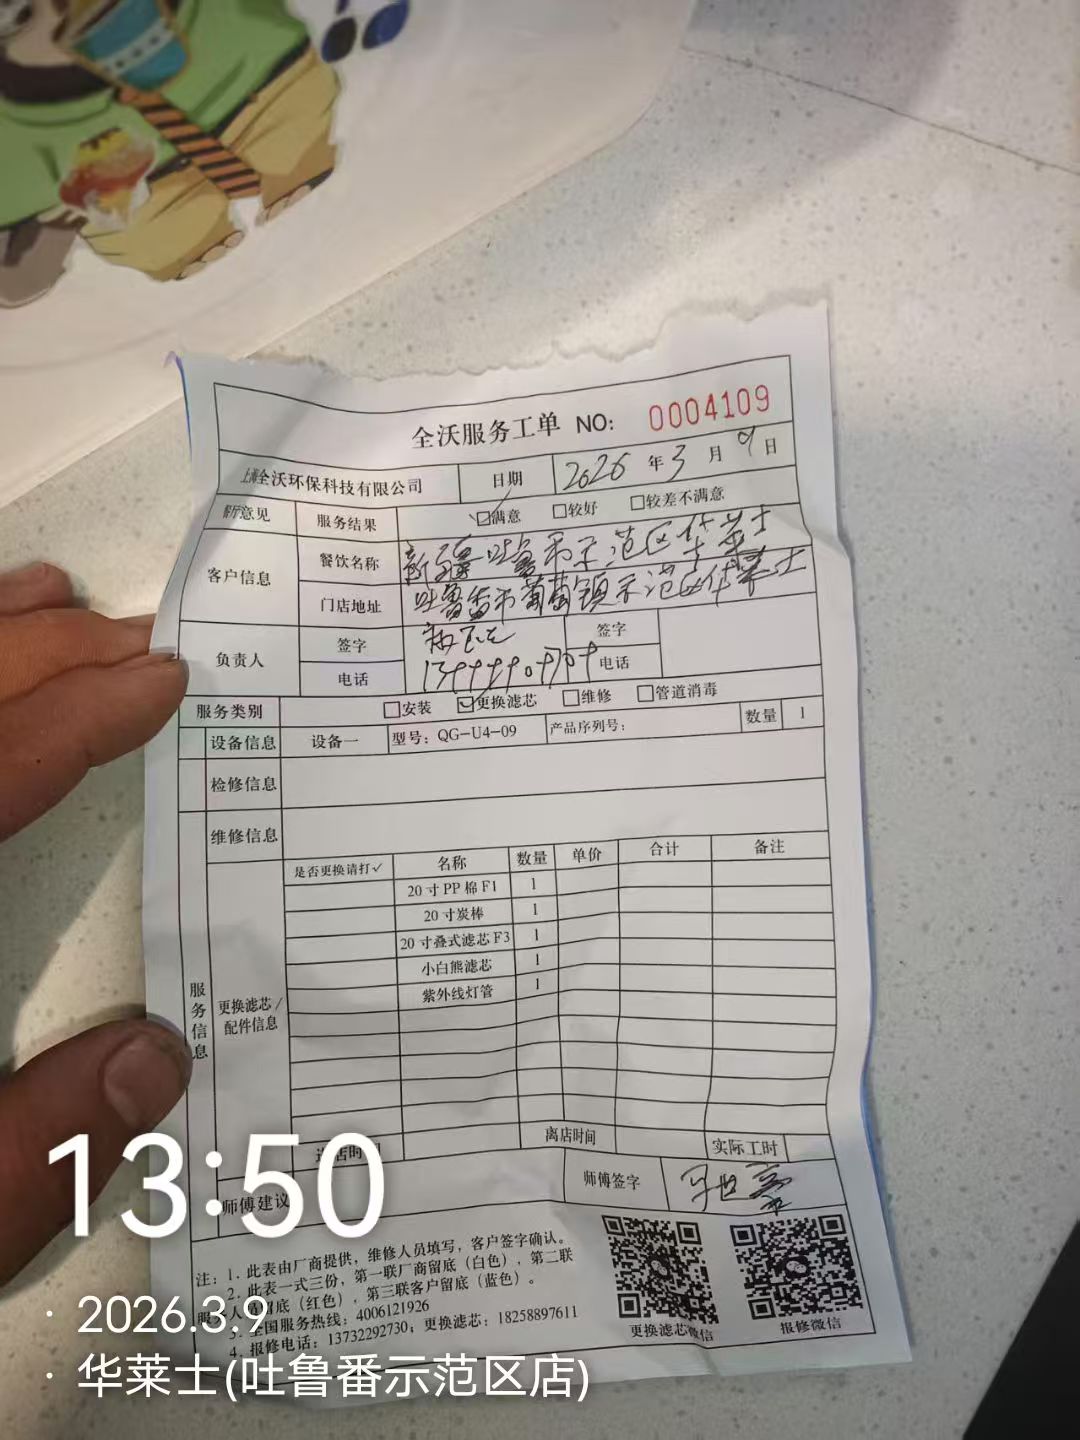 全沃服务工单 NO: 0004109
上海全沃环保科技有限公司 日期 2026年3月9日
意见 服务结果 ☑满意 □较好 □较差不满意
客户信息 餐饮名称 新疆吐鲁番市示范区华莱士
门店地址 吐鲁番市葡萄镇示范区华莱士
负责人 签字 签字
电话 电话
服务类别 □安装 ☑更换滤芯 □维修 □管道消毒
设备信息 设备一 型号：QG-U4-09 产品序列号： 数量 1
检修信息
维修信息
服务信息 更换滤芯/配件信息 是否更换请打✓ 名称 数量 单价 合计 备注
20寸PP棉F1 1
20寸炭棒 1
20寸叠式滤芯F3 1
小白熊滤芯 1
紫外线灯管 1
店时间 离店时间 实际工时
师傅建议 师傅签字
注：1．此表由厂商提供，维修人员填写，客户签字确认。
2．此表一式三份，第一联厂商留底（白色），第二联
服务人员留底（红色），第三联客户留底（蓝色）。
3．全国服务热线：4006121926
4．报修电话：13732292730；更换滤芯：18258897611
更换滤芯微信 报修微信
13:50
· 2026.3.9
· 华莱士(吐鲁番示范区店)